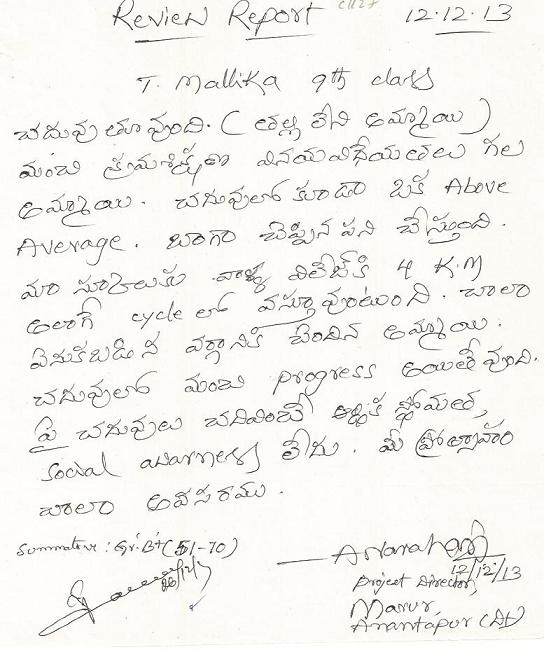 Review Report C1127 12.12.13
T. Mallika 9th class
చదువుతూ వుంది. (తల్లి లేని అమ్మాయి)
మంచి క్రమశిక్షణ వినయవిధేయతలు గల
అమ్మాయి. చదువులో కూడా ఒక Above
Average. బాగా చెప్పిన పని చేస్తుంది.
మా స్కూలుకు వాళ్ళ విలేజ్‌కి 4 K.M
అలాగే cycle లో వస్తూవుంటుంది. చాలా
వెనుకబడిన వర్గానికి చెందిన అమ్మాయి.
చదువులో మంచి progress అయితే వుంది.
పై చదువులు చదివించే ఆర్థిక స్థోమత,
social awarness లేదు. మీ ప్రోత్సాహం
చాలా అవసరము.
Summative: Gr.B+(51-70)
12/12/13
Project Director,
Marur,
Anantapur (Dt)